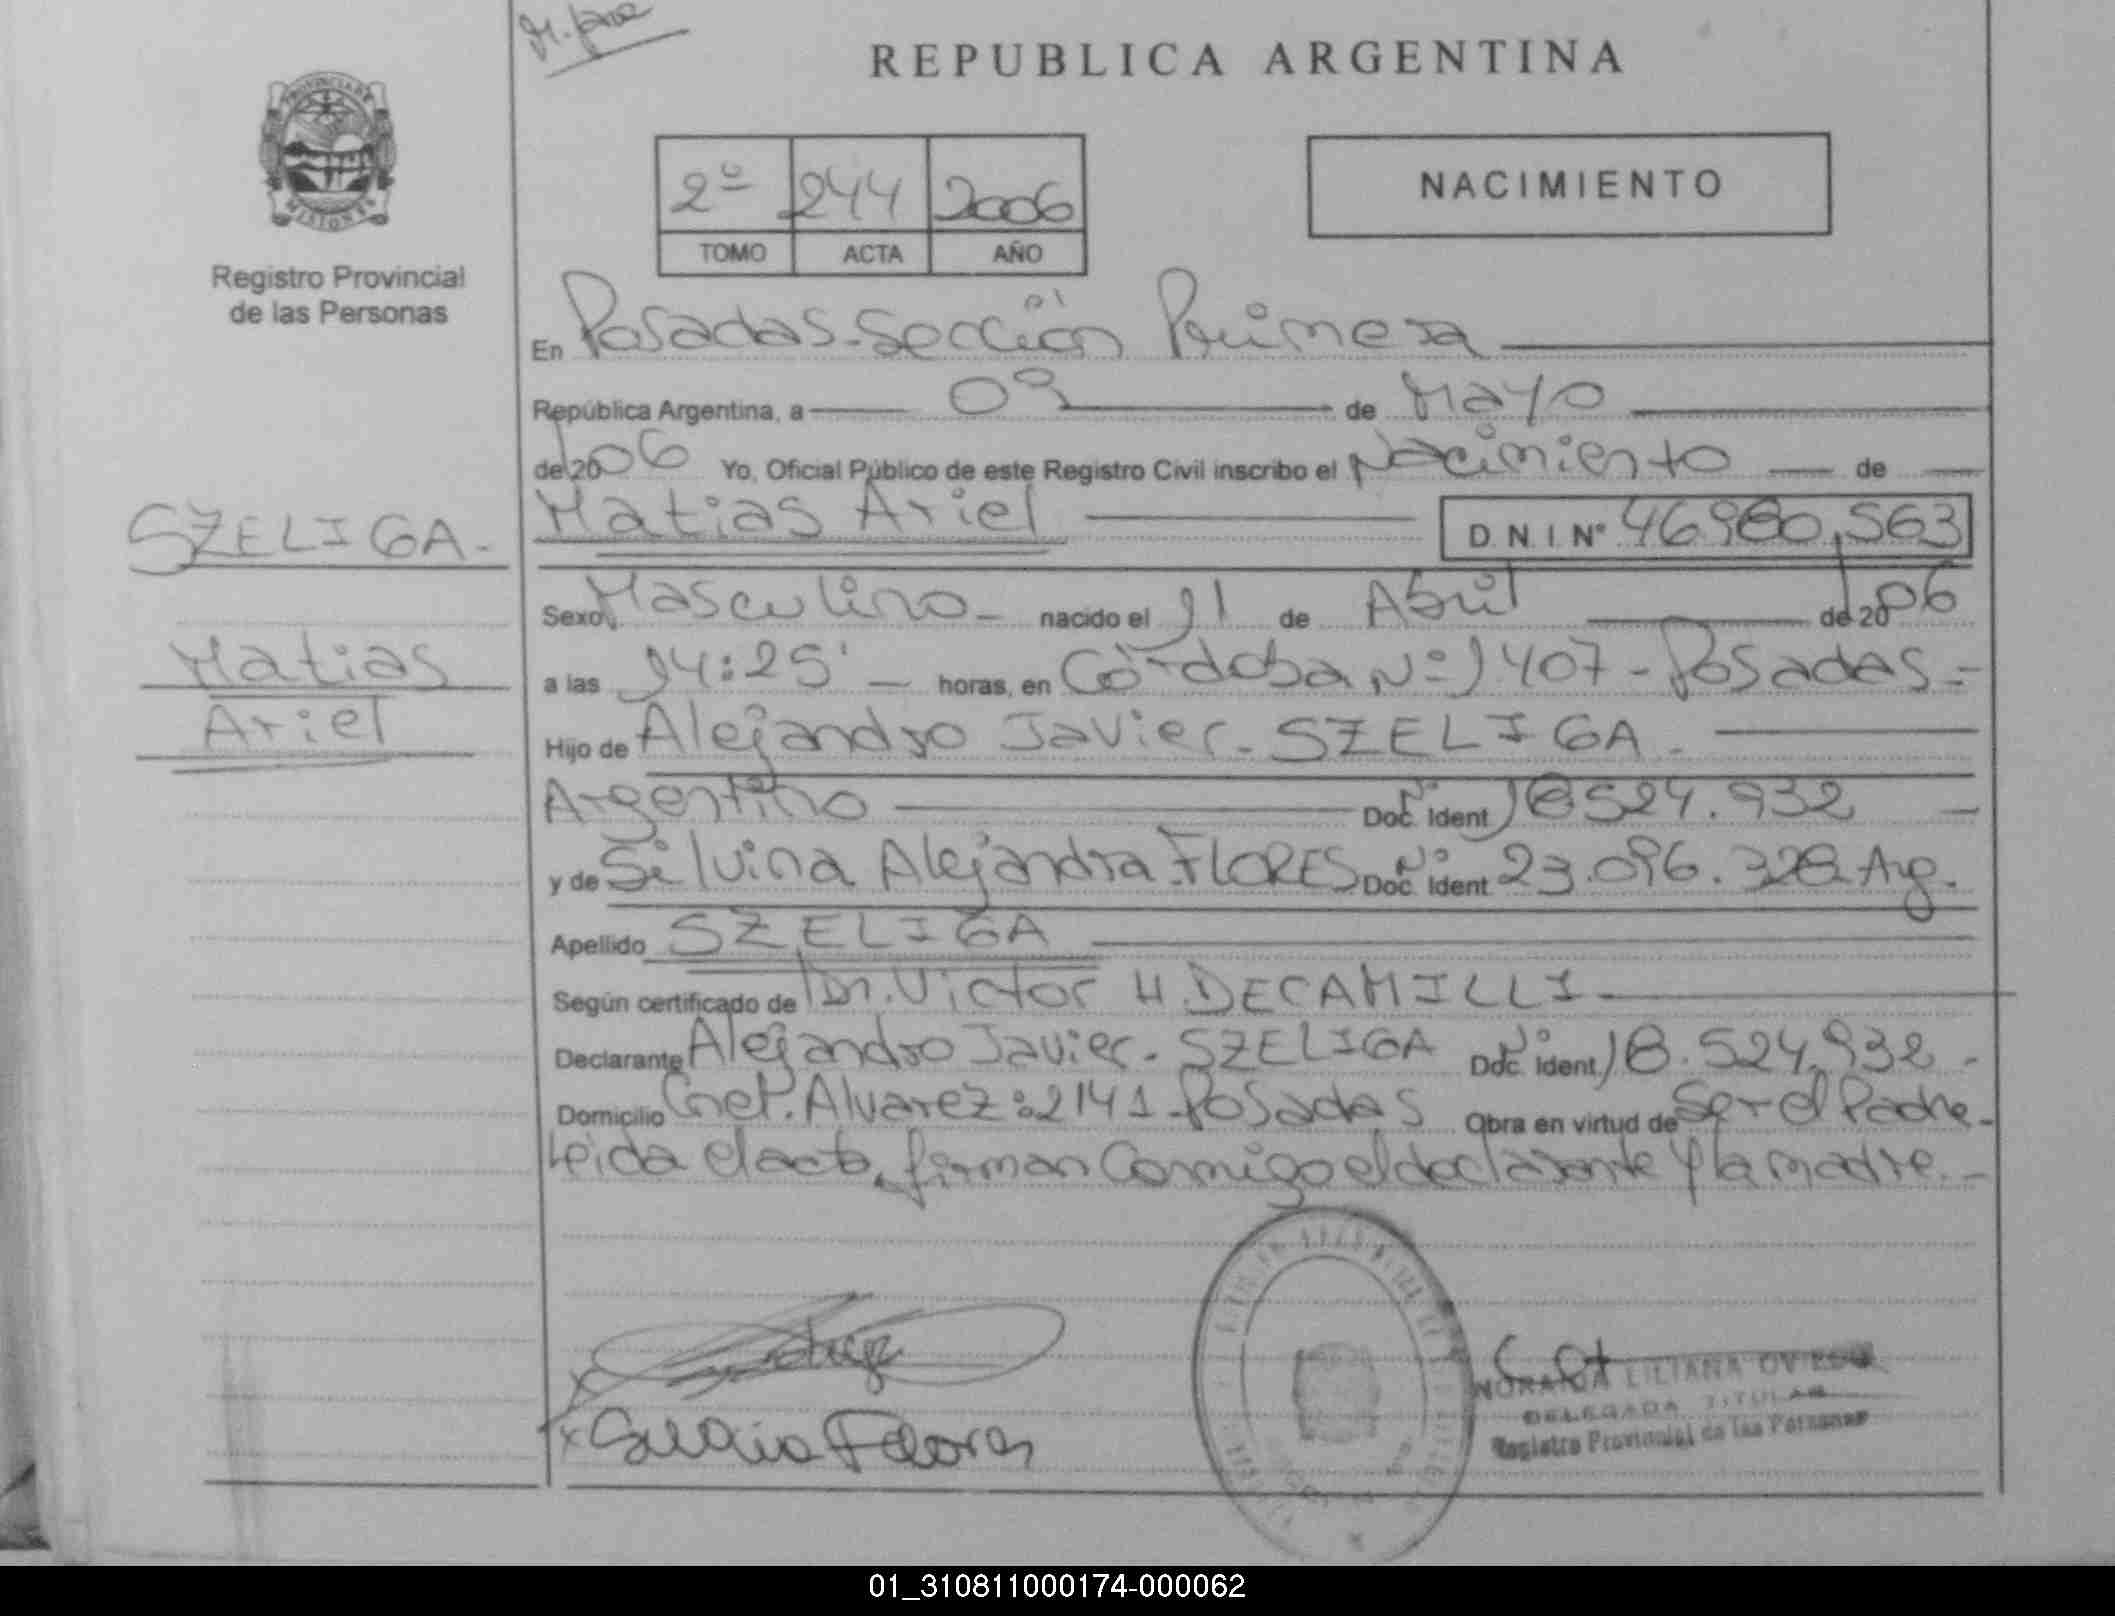 REPUBLICA ARGENTINA
PROVINCIA DE
MISIONES
Registro Provincial
de las Personas
2º 244 2006
TOMO ACTA AÑO
NACIMIENTO
En Posadas-Sección Primera
República Argentina, a 09 de Mayo
de 2006 Yo, Oficial Público de este Registro Civil inscribo el Nacimiento de
Matias Ariel D.N.I. Nº 46.980.563
SZELIGA.-
Matias
Ariel
Sexo Masculino- nacido el 11 de Abril de 2006
a las 14:25'- horas, en Córdoba Nº 1407-Posadas-
Hijo de Alejandro Javier-SZELIGA.
Argentino Doc. Ident Nº 18.524.932 -
y de Silvina Alejandra FLORES Doc. Ident Nº 23.096.328 Arg.
Apellido SZELIGA
Según certificado de Dr. Victor H. DECAMILLI
Declarante Alejandro Javier-SZELIGA Doc. Ident Nº 18.524.932-
Domicilio Cnel. Alvarez:2141-Posadas Obra en virtud de Ser el Padre-
Leida el acta, firman Conmigo el declarante y la madre.-
NORAIDA LILIANA OVIEDO
DELEGADA TITULAR
Registro Provincial de las Personas
x Silvina Flores
01_310811000174-000062